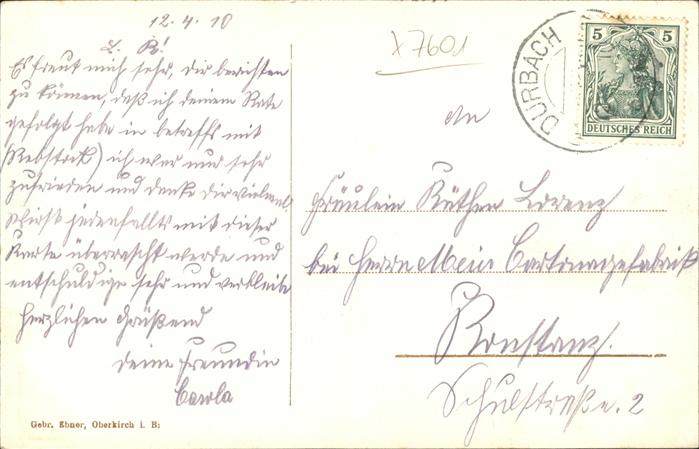 12.4.10
L. K!
Es freut mich sehr, dir berichten
zu können, daß ich deinem Rate
gefolgt habe in betreffs mit
(Rebstock) ich war nur sehr
zufrieden und danke dir vielmal
wirst jedenfalls mit dieser
Karte überrascht werde und
entschuldige sehr und verbleibe
herzlichen Grüßend
deine Freundin
Carola
Gebr. Ebner, Oberkirch i. B:
X7601
DURBACH
5 5
DEUTSCHES REICH
An
Fräulein Käthen Lorenz
bei Herrn Meier Cartonagefabrik
Konstanz.
Schulstraße. 2